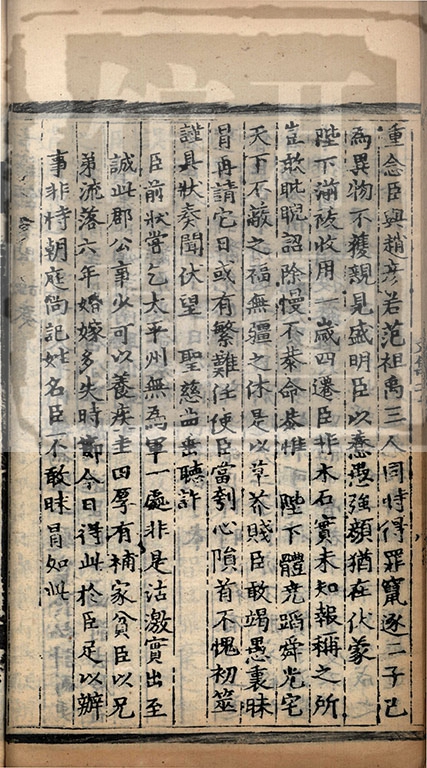 重念臣與趙彥若范祖禹三人同時得罪竄逐二子已
為異物不獲親見盛明臣以憃愚強顏猶在伏蒙
陛下滌祓收用一歲四遷臣非木石實未知報稱之所
豈敢睥睨詔除慢不恭命恭惟 陛下體堯蹈舜光宅
天下不蔽之福無疆之休是以草芥賤臣敢竭愚衷昧
冒再請它日或有繁難任使臣當刳心隕首不愧初筮
謹具狀奏聞伏望 聖慈曲垂聽許
臣前狀嘗乞太平州無為軍一處非是沽激實出至
誠此郡公事少可以養疾圭田厚有補家貧臣以兄
弟流落六年婚嫁多失時節今日得此於臣足以辦
事非特朝庭尚記姓名臣不敢昧冒如此